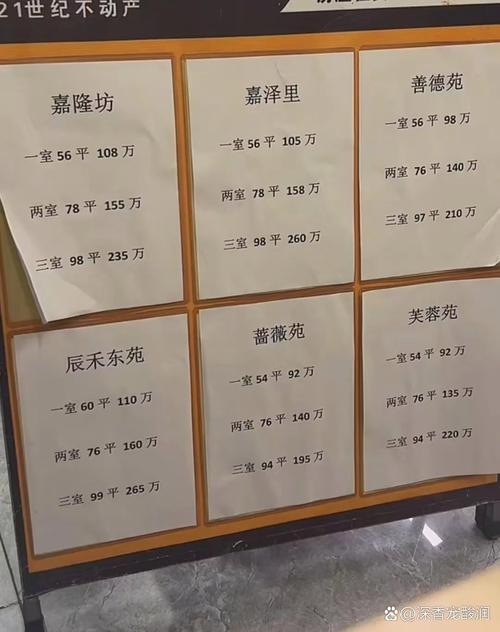 21世纪不动产
嘉隆坊
一室 56 平 108 万
两室 78 平 155 万
三室 98 平 235 万
嘉泽里
一室 56 平 105 万
两室 78 平 158 万
三室 98 平 260 万
善德苑
一室 56 平 98 万
两室 76 平 140 万
三室 97 平 210 万
辰禾东苑
一室 60 平 110 万
两室 76 平 160 万
三室 99 平 265 万
蔷薇苑
一室 54 平 92 万
两室 76 平 140 万
三室 94 平 195 万
芙蓉苑
一室 54 平 92 万
两室 76 平 135 万
三室 94 平 220 万
@深香宠酸润